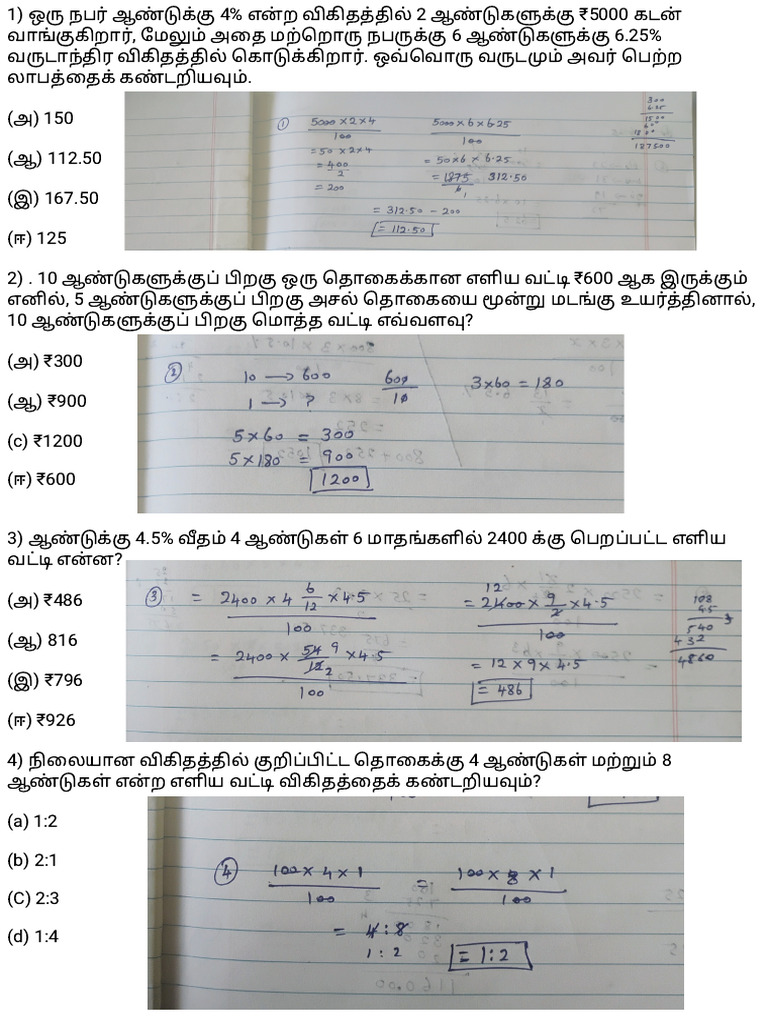 1) ஒரு நபர் ஆண்டுக்கு 4% என்ற விகிதத்தில் 2 ஆண்டுகளுக்கு ₹5000 கடன்
வாங்குகிறார், மேலும் அதை மற்றொரு நபருக்கு 6 ஆண்டுகளுக்கு 6.25%
வருடாந்திர விகிதத்தில் கொடுக்கிறார். ஒவ்வொரு வருடமும் அவர் பெற்ற
லாபத்தைக் கண்டறியவும்.
(அ) 150
(ஆ) 112.50
(இ) 167.50
(ஈ) 125
① 5000 × 2 × 4 / 100
= 50 × 2 × 4
= 400 / 2
= 200
5000 × 6 × 6.25 / 100
= 50 × 6 × 6.25
= 1875 / 6 312.50
= 312.50 – 200
= 112.50
300
6.25
1500
600
1800
187500
2) . 10 ஆண்டுகளுக்குப் பிறகு ஒரு தொகைக்கான எளிய வட்டி ₹600 ஆக இருக்கும்
எனில், 5 ஆண்டுகளுக்குப் பிறகு அசல் தொகையை மூன்று மடங்கு உயர்த்தினால்,
10 ஆண்டுகளுக்குப் பிறகு மொத்த வட்டி எவ்வளவு?
(அ) ₹300
(ஆ) ₹900
(c) ₹1200
(ஈ) ₹600
② 10 → 600 600 / 10 3×60 = 180
1 → ?
5×60 = 300
5×180 = 900
1200
3) ஆண்டுக்கு 4.5% வீதம் 4 ஆண்டுகள் 6 மாதங்களில் 2400 க்கு பெறப்பட்ட எளிய
வட்டி என்ன?
(அ) ₹486
(ஆ) 816
(இ) ₹796
(ஈ) ₹926
③ = 2400 × 4 6/12 × 4.5 / 100
= 2400 × 54 9 / 12 2 × 4.5 / 100
12
= 2400 × 9/2 × 4.5 / 100
= 12 × 9 × 4.5
= 486
108
45
540
432
4860
4) நிலையான விகிதத்தில் குறிப்பிட்ட தொகைக்கு 4 ஆண்டுகள் மற்றும் 8
ஆண்டுகள் என்ற எளிய வட்டி விகிதத்தைக் கண்டறியவும்?
(a) 1:2
(b) 2:1
(C) 2:3
(d) 1:4
④ 100 × 4 × 1 / 100 = 100 × 8 × 1 / 100
= 4 : 8
1 : 2 = 1:2